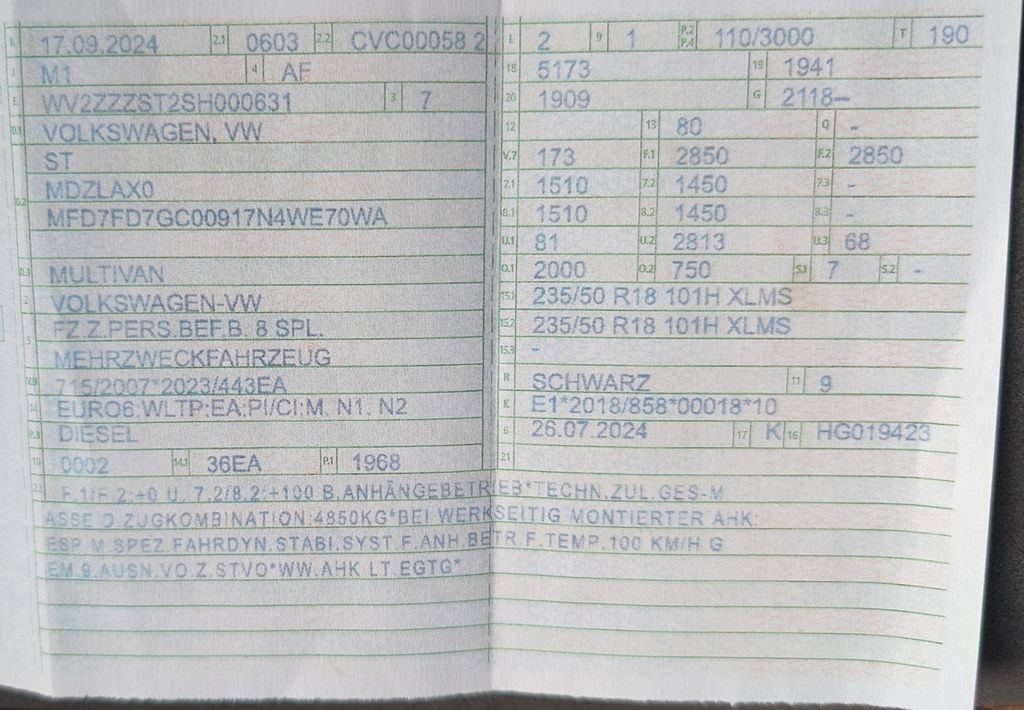 B 17.09.2024 2.1 0603 2.2 CVC00058 2
J M1 4 AF
E WV2ZZZST2SH000631 3 7
D.1 VOLKSWAGEN, VW
ST
MDZLAX0
D.2 MFD7FD7GC00917N4WE70WA
D.3 MULTIVAN
2 VOLKSWAGEN-VW
FZ.Z.PERS.BEF.B. 8 SPL.
5 MEHRZWECKFAHRZEUG
V.9 715/2007*2023/443EA
14 EURO6;WLTP;EA;PI/CI:M, N1, N2
P.3 DIESEL
10 0002 14.1 36EA P.1 1968
L 2 9 1 P.2 P.4 110/3000 T 190
18 5173 19 1941
20 1909 G 2118–
12 13 80 Q -
V.7 173 F.1 2850 F.2 2850
7.1 1510 7.2 1450 7.3 -
8.1 1510 8.2 1450 8.3 -
U.1 81 U.2 2813 U.3 68
O.1 2000 O.2 750 S.1 7 S.2 -
15.1 235/50 R18 101H XLMS
15.2 235/50 R18 101H XLMS
15.3 -
R SCHWARZ 11 9
K E1*2018/858*00018*10
6 26.07.2024 17 K 16 HG019423
21
22 F.1/F.2:+0 U. 7.2/8.2:+100 B.ANHÄNGEBETRIEB*TECHN.ZUL.GES-M
ASSE D.ZUGKOMBINATION:4850KG*BEI WERKSEITIG MONTIERTER AHK:
ESP M.SPEZ.FAHRDYN.STABI.SYST.F.ANH.BETR.F.TEMP.100 KM/H G
EM.9.AUSN.VO.Z.STVO*WW.AHK LT.EGTG*